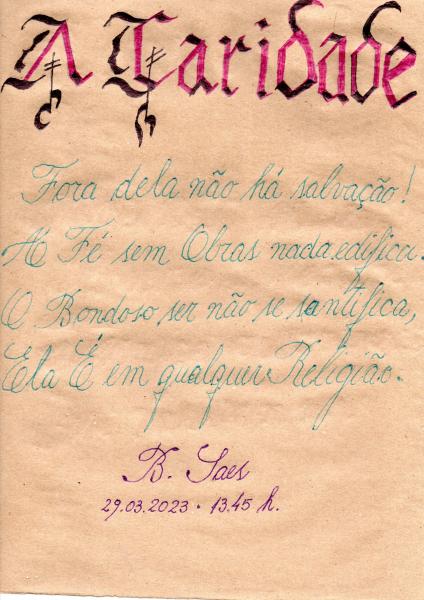 A Caridade
Fora dela não há salvação!
A Fé sem Obras nada edifica.
O Bondoso ser não se santifica,
Ela É em qualquer Religião.
B. Saes
29.03.2023 · 13.45 h.